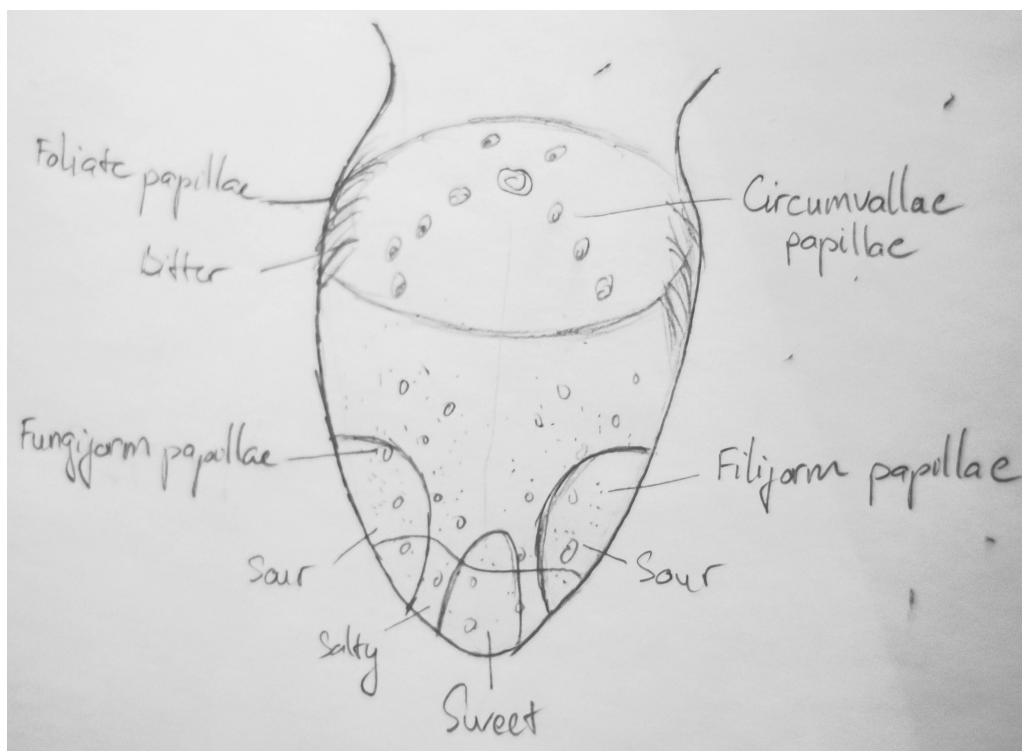 Foliate papillae
bitter
Circumvallae
papillae
Fungiform papillae
Filiform papillae
Sour
Sour
Salty
Sweet